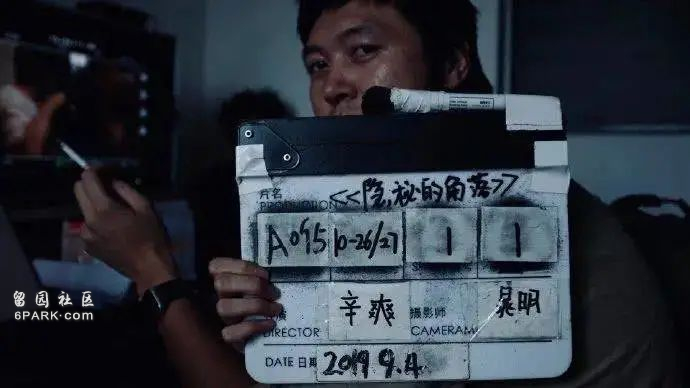 片名
PRODUCTION
<<隐秘的角落>>
A095 10-26/27 1 1
DIRECTOR 辛爽 摄影师 CAMERAM 晁明
DATE 日期 2019 9.4
留园社区
6PARK.com